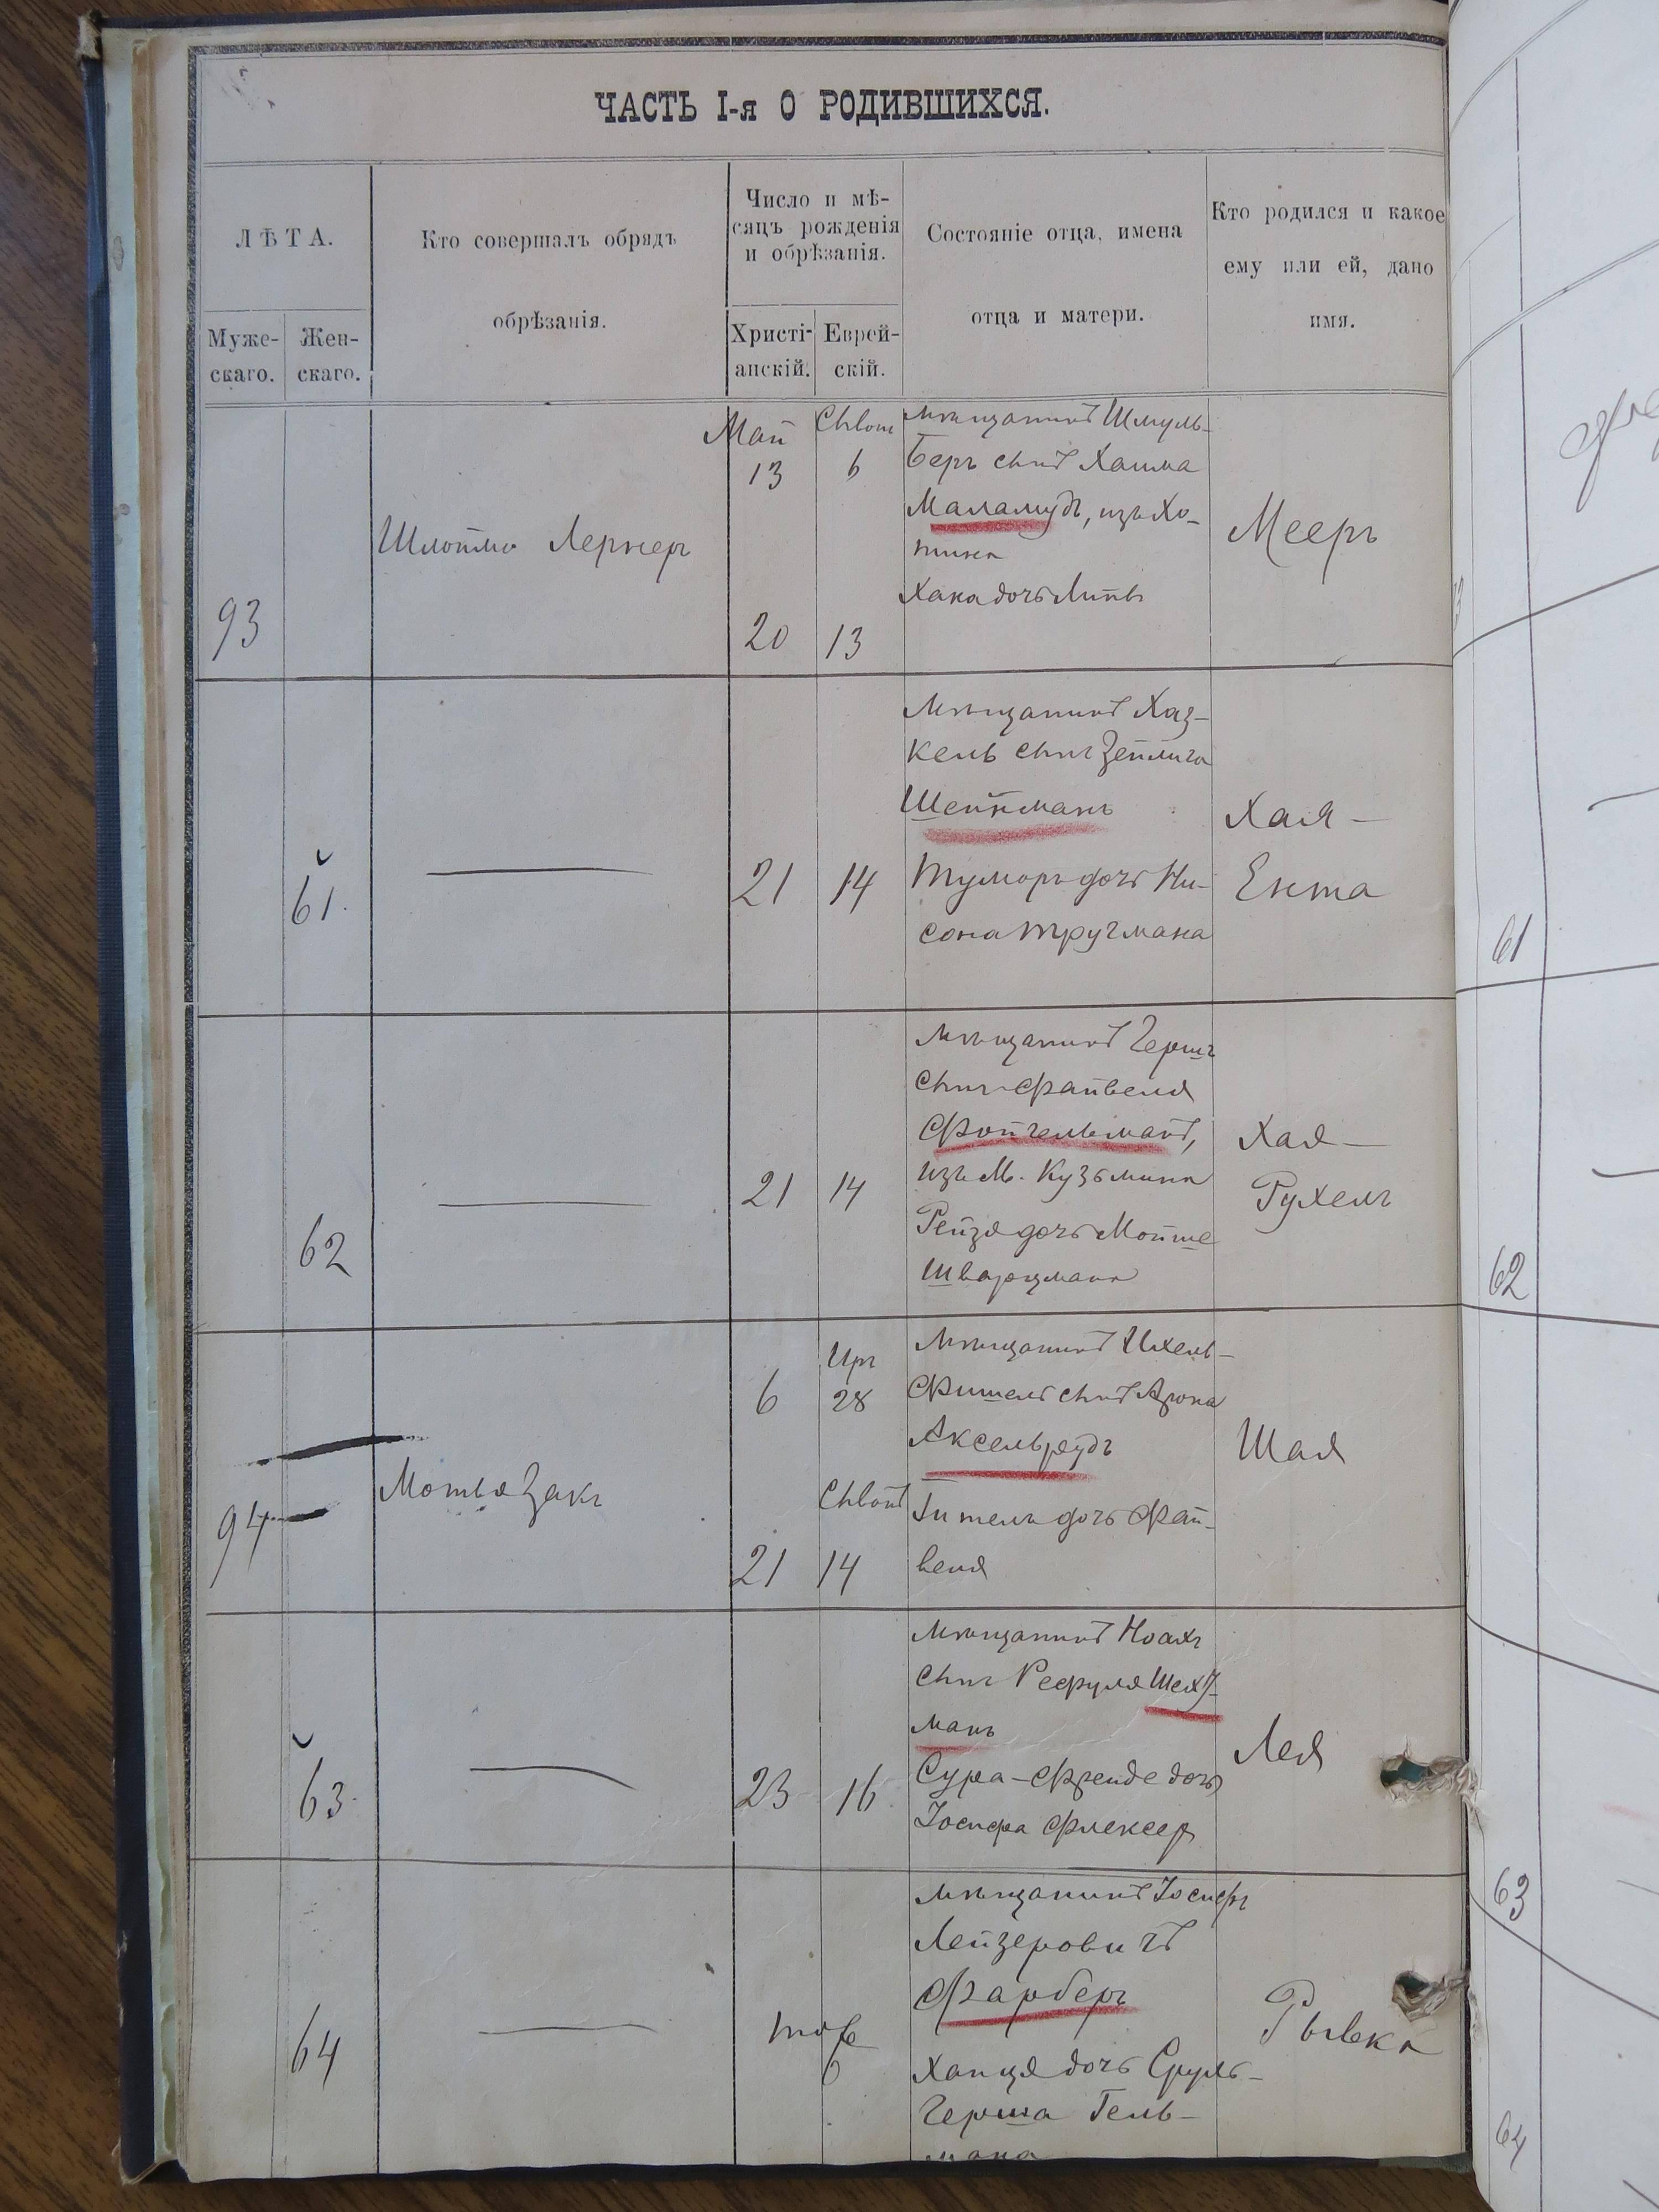 ЧАСТЬ I-я О РОДИВШИХСЯ.
ЛѢТА.
Муже-
скаго.
Жен-
скаго.
Кто совершалъ обрядъ
обрѣзанія.
Число и мѣ-
сяцъ рожденія
и обрѣзанія.
Христі-
анскій.
Еврей-
скій.
Состояніе отца, имена
отца и матери.
Кто родился и какое
ему или ей, дано
имя.
93
Шлойма Лернеръ
Май
13
20
6
13
мѣщанинъ Шмуль-
Беръ сынъ Хаима
Маламудъ, изъ Хо-
тина
Хана дочь Липы
Мееръ
61.
21
14
Мѣщанинъ Хаз-
кель сынъ Зейлига
Шейнманъ
Тумаръ дочь Ни-
сона Тругмана
Хая-
Ента
61
62
21
14
Мѣщанинъ Гершъ
сынъ Файвеля
Фойгельманъ,
изъ М. Кузьмина
Рейзя дочь Мойше
Шварцмана
Хая-
Рухель
62
94
Мотья Закъ
6
21
Ир
28
14
Мѣщанинъ Ихель-
Фишель сынъ Арона
Аксельрудъ
Гитель дочь Фай-
веля
Шая
63.
23
16
Мѣщанинъ Ноахъ
сынъ Рефуля Шехт-
манъ
Сура-Фрейде дочь
Іосифа Флексер
Лея
63
64
тоже
Мѣщанинъ Іосифъ
Лейзеровичъ
Фарберъ
Ханця дочь Сруль-
Герша Гель-
мана
Рывка
64